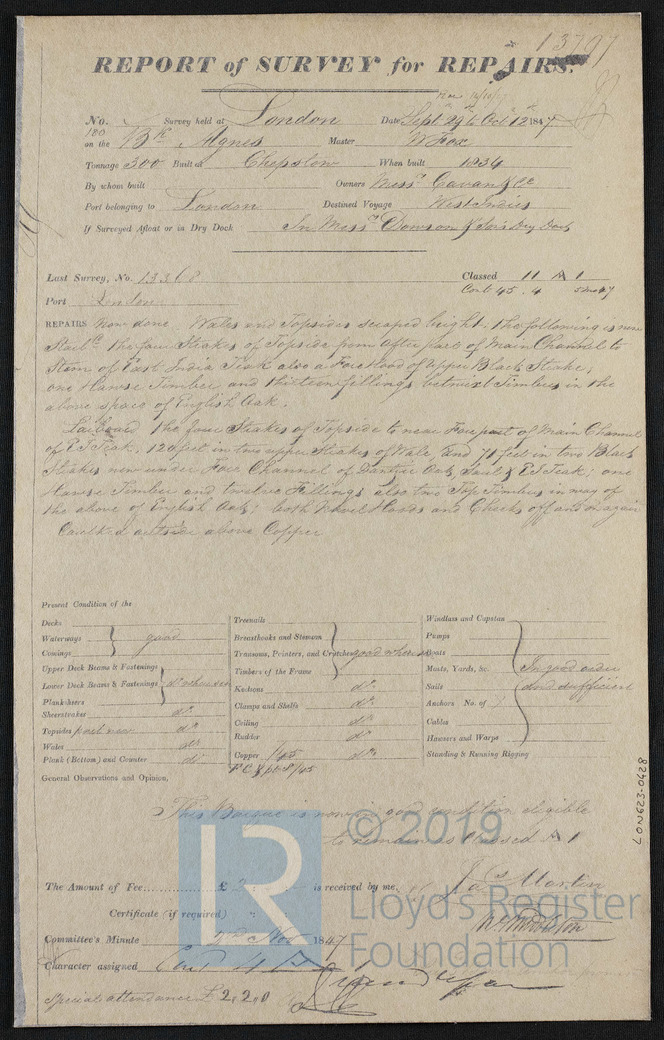 13797
REPORT of SURVEY for REPAIRS.
No. Survey held at London Date Sept. 29 to Oct. 12 1847
180
on the Bk Agnes Master W Fox
Tonnage 300 Built at Chepstow When built 1834
By whom built Owners Messrs Cavan & Co
Port belonging to London Destined Voyage West Indies
If Surveyed Afloat or in Dry Dock In Messrs Dowson & Son's Dry Dock
Last Survey, No. 13368 Classed 11 A 1
Contd 45. 4
Port London
REPAIRS Now done Wales and Topsides scraped bright. the following is new
Starbd the four Strakes of Topside from after part of Main Channel to
Stern of East India Teak also a Forehood of Upper Black Strake,
one Hawse Timber and thirteen fillings betwixt Timbers in the
above space of English Oak.
Larboard the four Strakes of Topside to near Fore part of Main Channel
of E I Teak, 120 feet in two upper Strakes of Wale, and 71 feet in two Black
Strakes new under Fore Channel of Dantzic Oak, & E I Teak; one
Hawse Timber and twelve Fillings also two Top Timbers in way of
the above of English Oak; both Navel Hoods and Cheeks off and on again
Caulk'd outside above Copper
Present Condition of the
Decks
Waterways good
Comings
Upper Deck Beams & Fastenings
Lower Deck Beams & Fastenings do where seen
Planksheers
Sheerstrakes do
Topsides part new do
Wales do
Plank (Bottom) and Counter do
Treenails
Breasthooks and Stemson
Transoms, Pointers, and Crutches good where seen
Timbers of the Frame
Keelsons do
Clamps and Shelfs do
Ceiling do
Rudder do
Copper 1/45 do
Windlass and Capstan
Pumps
Boats
Masts, Yards, &c. In good order
Sails and sufficient
Anchors No. of
Cables
Hawsers and Warps
Standing & Running Rigging
General Observations and Opinion,
This Barque is now in good condition eligible
to remain as Classed A 1
The Amount of Fee £ 2 is received by me,
Jas Martin
Certificate (if required)
Committee's Minute 2nd Nov 1847
Character assigned Contd 4 A 1
Special attendance £ 2,2,0
LON623-0428
© 2019
LR
Lloyd's Register
Foundation